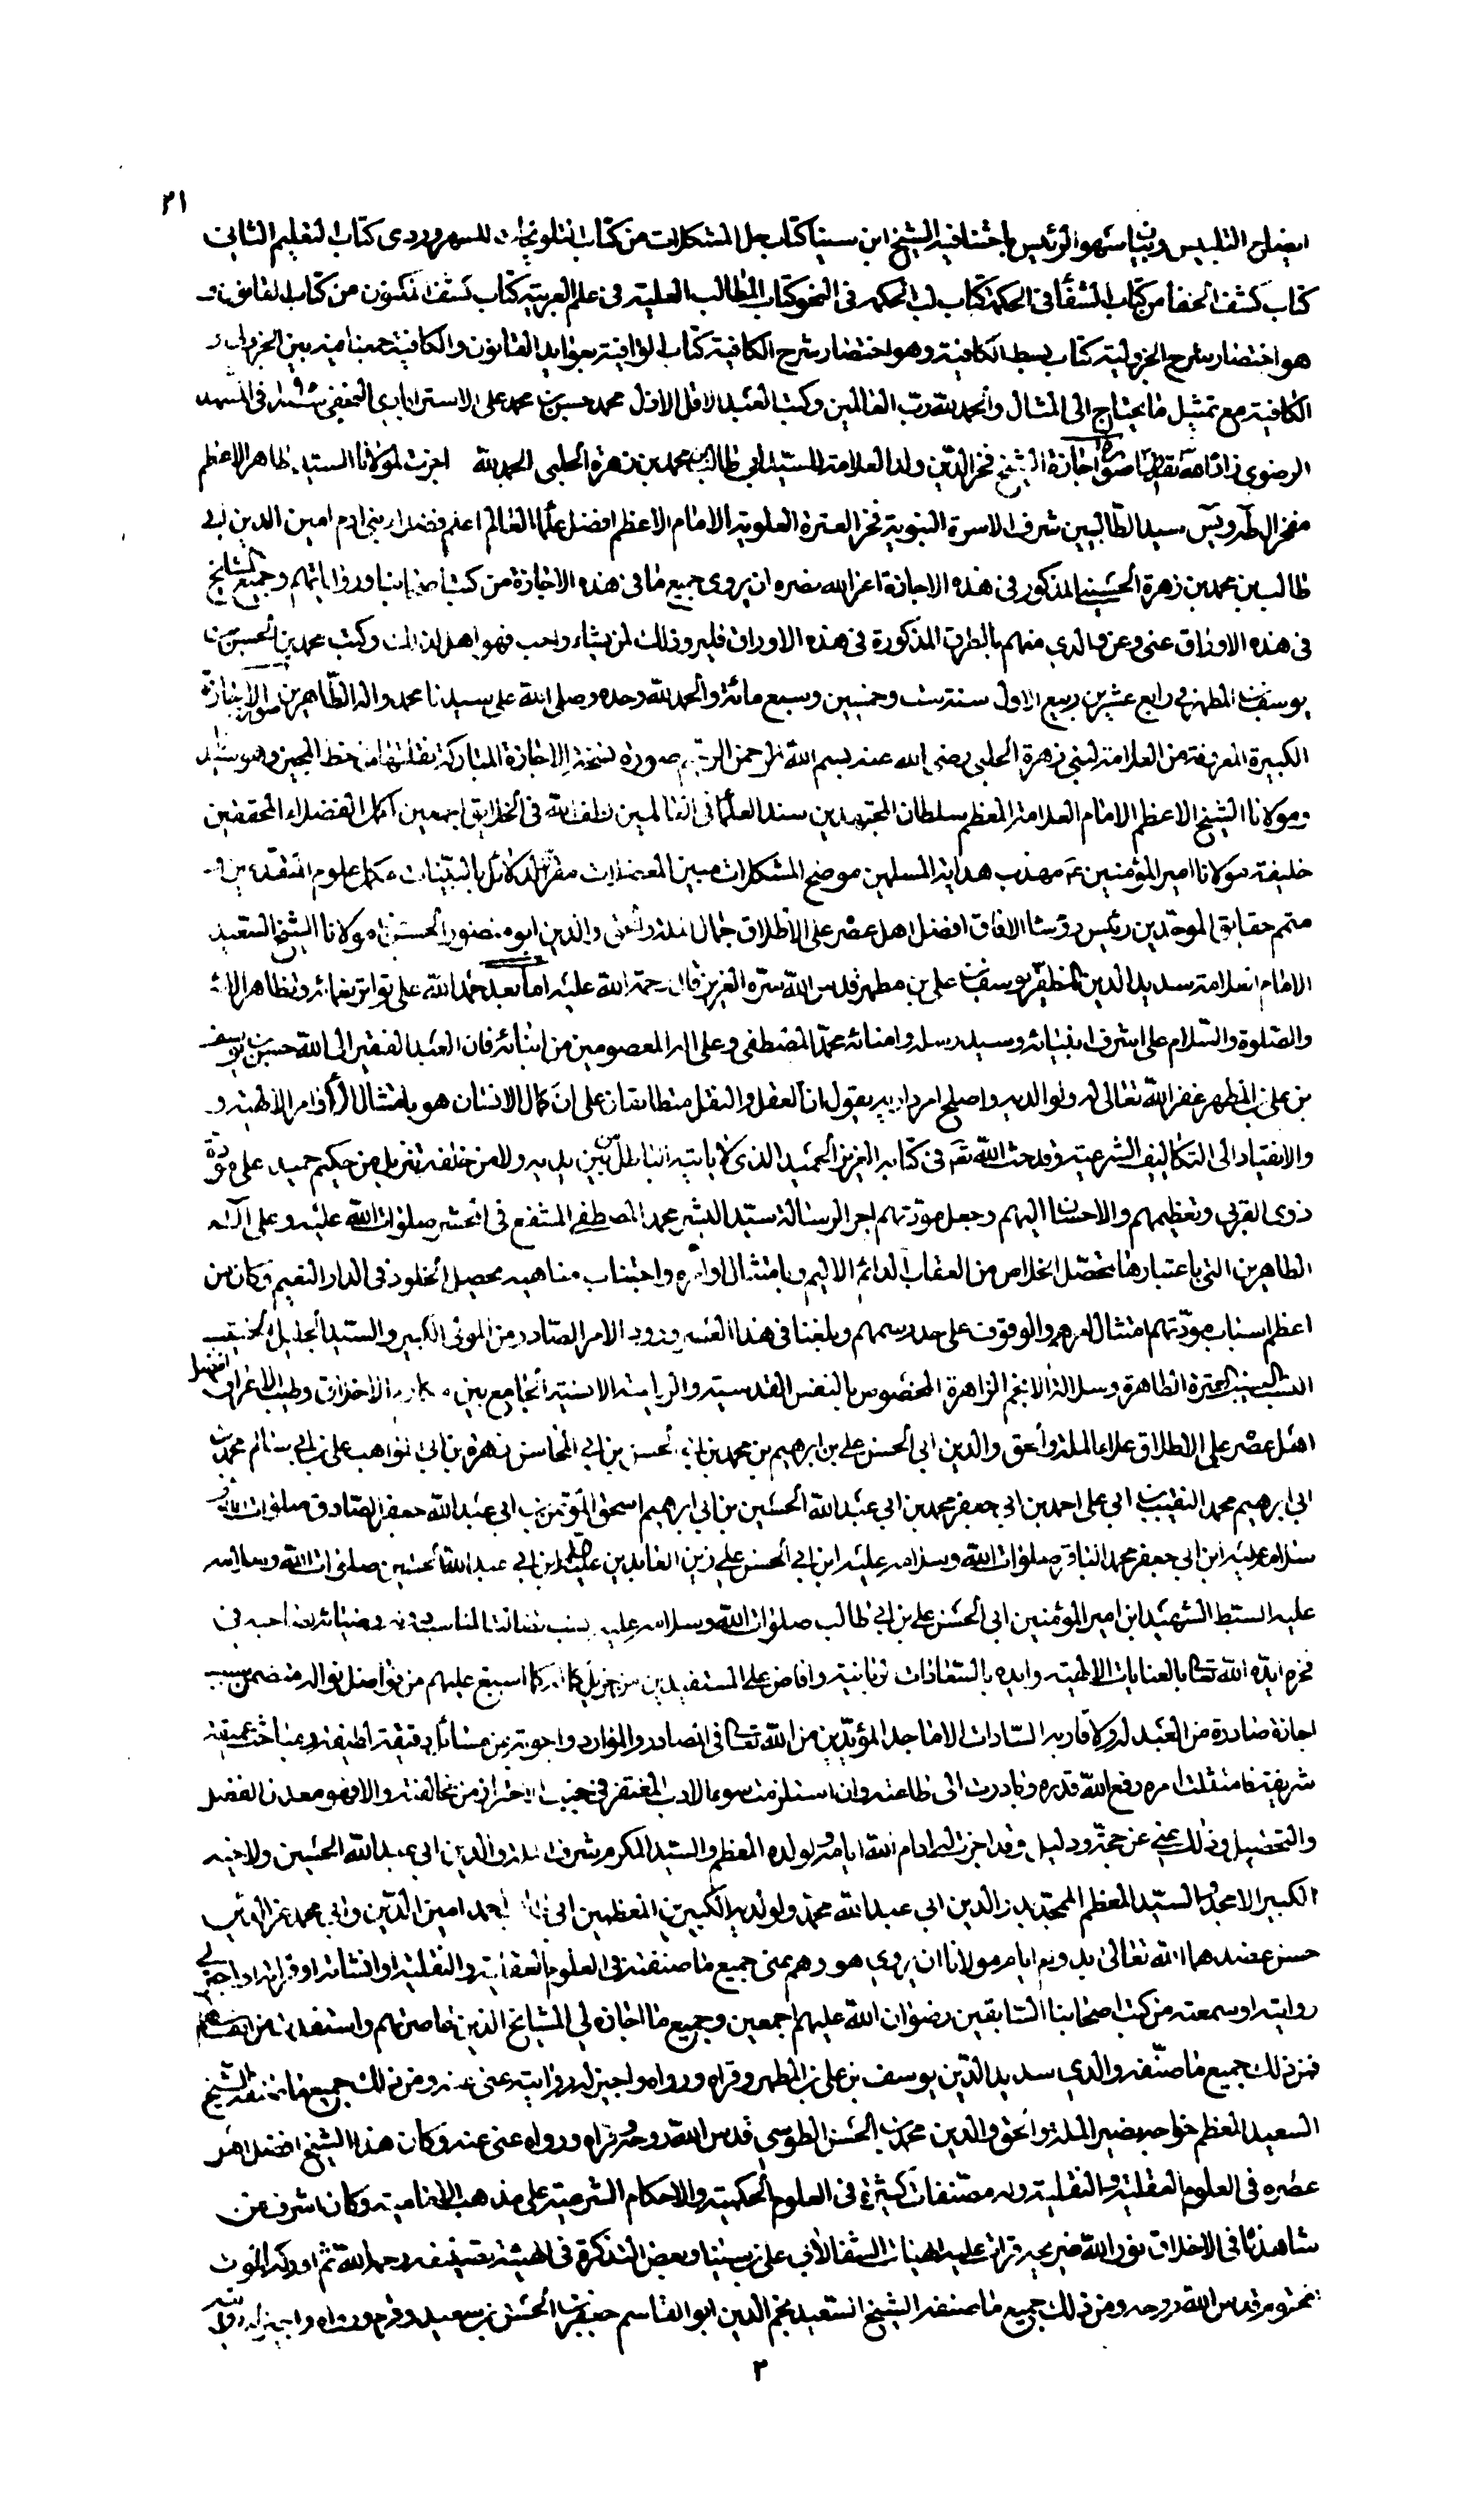 ٢١
ايضاح التلبيس وبيان سهو الرئيس باحثنا فيه الشيخ ابن سينا كتاب حل المشكلات من كتاب التلويحات للسهروردى كتاب التعليم الثانى
كتاب كشف الخفا من كتاب الشفا فى الحكمة كتاب لب الحكمه فى النحو كتاب المطالب العلية فى علم العربية كتاب كشف المكنون من كتاب القانون و
هو اختصار شرح الجزولية كتاب بسط الكافية وهو اختصار شرح الكافية كتاب الوافية بفوايد القانون والكافية جمعنا فيه بين الجزولية و
الكافية مع تمثيل ما يحتاج الى المثال والحمد لله رب العالمين وكتب العبد الاقل الاذل محمد حسين بن محمد على الاسترابادى النجفى فى المشهد
الرضوى زاد الله صورة اجازة الشيخ فخر الدين ولد العلامة للسيد ابى طالب بن محمد بن زهرة الحلبى الحمد لله اجزت لمولانا السيد الطاهر الاعظم
مفخر ال طه ويس سيد الطالبيين شرف الاسرة النبوية فخر العترة العلوية الامام الاعظم افضل علماء العالم اعلم فضلاء بنى ادم امين الدين ابى
طالب بن محمد بن زهرة الحسينى المذكور فى هذه الاجازة اعز الله نصره ان يروى جميع ما فى هذه الاجازة من كتب اصحابنا ورواياتهم وجميع المشايخ
فى هذه الاوراق عنى وعن والدى منهم بالطرق المذكورة فى هذه الاوراق فليرو ذلك لمن يشاء واحب فهو اهل لذلك وكتب محمد بن الحسن بن
يوسف بن المطهر فى رابع عشرين ربيع الاول سنة ست وخمسين وسبع مائة والحمد لله وحده وصلى الله على سيدنا محمد واله الطاهرين صورة الاجازة
الكبيرة المعروفة من العلامة لبنى زهرة الحلبى رضى الله عنه بسم الله الرحمن الرحيم صورة نسخة الاجازة المباركة نقلتها من خط المجيز وهو
ومولانا الشيخ الاعظم الامام العلامة المعظم سلطان المجتهدين سند العلماء فى العالمين لطف الله فى الخلايق اجمعين اكمل الفضلاء المحققين
خليفة مولانا امير المؤمنين ع مهذب هداية المسلمين موضح المشكلات مبين المعضلات مقرر الدلائل بالبينات مكمل علوم المتقدمين و
متمم حقايق الموحدين رئيس رؤسا الافاق افضل اهل عصره على الاطلاق جمال الملة والحق والدين ابو منصور الحسن بن مولانا الشيخ السعيد
الامام العلامة سديد الدين المظفر يوسف بن على بن مطهر قدس الله سره العزيز قال رحمة الله عليه اما بعد حمد الله على تواتر نعمائه وتظاهر الائه
والصلوة والسلام على اشرف انبيائه وسيد رسله وامنائه محمد المصطفى وعلى اله المعصومين من ابنائه فان العبد الفقير الى الله حسن بن يوسف
بن على بن المطهر غفر الله تعالى له ولوالديه واصلح امر داريه يقول ان العقل والنقل متطابقان على ان كمال الانسان هو بامتثال الاوامر الالهية و
والانقياد الى التكاليف الشرعية وقد حث الله تع فى كتابه العزيز الحميد الذى لا ياتيه الباطل من بين يديه ولا من خلفه تنزيل من حكيم حميد على مودة
ذوى القربى وتعظيمهم والاحسان اليهم وجعل مودتهم اجر الرسالة سيد البشر محمد المصطفى المشفع فى المحشر صلوات الله عليه وعلى اله
الطاهرين التى باعتبارها يحصل الخلاص من العقاب الدائم الاليم وبامتثال اوامره واجتناب مناهيه يحصل الخلود فى الدار النعيم وكان من
اعظم اسباب مودتهم امتثال امرهم والوقوف على حد رسمهم وبلغنا فى هذا العصر ورود الامر الصادر من المولى الكبير والسيد الجليل
العترة الطاهرة وسلالة الانجم الزاهرة المخصوص بالنفس القدسية والرياسة الانسية الجامع بين مكارم الاخلاق وطيب الاعراق افضل
اهل عصره على الاطلاق علاء الملة والحق والدين ابى الحسن على بن ابرهيم بن محمد بن ابى الحسن بن ابى المحاسن زهرة بن ابى المواهب على بن ابى سالم محمد بن
ابى ابرهيم محمد النقيب بن ابى على احمد بن ابى جعفر محمد بن ابى عبد الله الحسين بن ابى ابرهيم اسحق المؤتمن بن ابى عبد الله جعفر الصادق صلوات الله و
سلامه عليه ابن ابى جعفر محمد الباقر صلوات الله وسلامه عليه ابن ابى الحسن على زين العابدين عليه ابن ابى عبد الله الحسين صلوات الله وسلامه
عليه السبط الشهيد ابن امير المؤمنين ابى الحسن على بن ابى طالب صلوات الله وسلامه عليه
ايده الله تعالى بالعنايات الالهية وايده بالسعادات الربانية وافاض على المستفيدين من جزيل كماله كما اسبغ عليهم من فواضل نواله متضمن بسبب
اجازة صادرة من العبد له ولاقاربه السادات الاماجد المؤيدين من الله تعالى فى المصادر والموارد واجوبة من مسائل دقيقة لطيفة ومباحث عميقة
شريفة فامتثلت امره رفع الله قدره وبادرت الى طاعته وان استلزمت سوء الادب المغتفر فى جنب الاحتراز من مخالفته والا فهو معدن الفضل
والتحصيل وذلك يغنى عن حجة ودليل وقد اجزت له ادام الله ايامه ولولده المعظم والسيد المكرم شرف الملة والدين ابى عبد الله الحسين ولاخيه
الكبير الامجد والسيد المعظم الممجد بدر الدين ابى عبد الله محمد ولولديه الكبيرين المعظمين ابى طالب احمد امين الدين وابى محمد عز الدين
حسن عضدهما الله تعالى بدوام ايام مولانا ان يروى هو وهم عنى جميع ما صنفته فى العلوم العقلية والنقلية او انشاته او قراته او اجيز لى
روايته او سمعته من كتب اصحابنا السابقين رضوان الله عليهم اجمعين وجميع ما اجازه لى المشايخ الذين عاصرتهم واستفدت من انفاسهم
فمن ذلك جميع ما صنفه والدى سديد الدين يوسف بن على بن المطهر وقراه ورواه واجيز له روايته عنى عنه ومن ذلك جميع ما صنفه الشيخ
السعيد المعظم خواجه نصير الملة والحق والدين محمد بن الحسن الطوسى قدس الله روحه وقراه ورواه عنى عنه وكان هذا الشيخ افضل اهل
عصره فى العلوم العقلية والنقلية وله مصنفات كثيرة فى العلوم الحكمية والاحكام الشرعية على مذهب الامامية وكان اشرف من
شاهدناه فى الاخلاق نور الله ضريحه قرات عليه الهيات الشفا لابى على بن سينا وبعض التذكرة فى الهيئة تصنيفه رحمه الله ثم ادركه الموت
المحتوم قدس الله روحه ومن ذلك جميع ما صنفه الشيخ السعيد نجم الدين ابو القاسم جعفر بن الحسن بن سعيد وقراه ورواه واجيز له روايته
٣